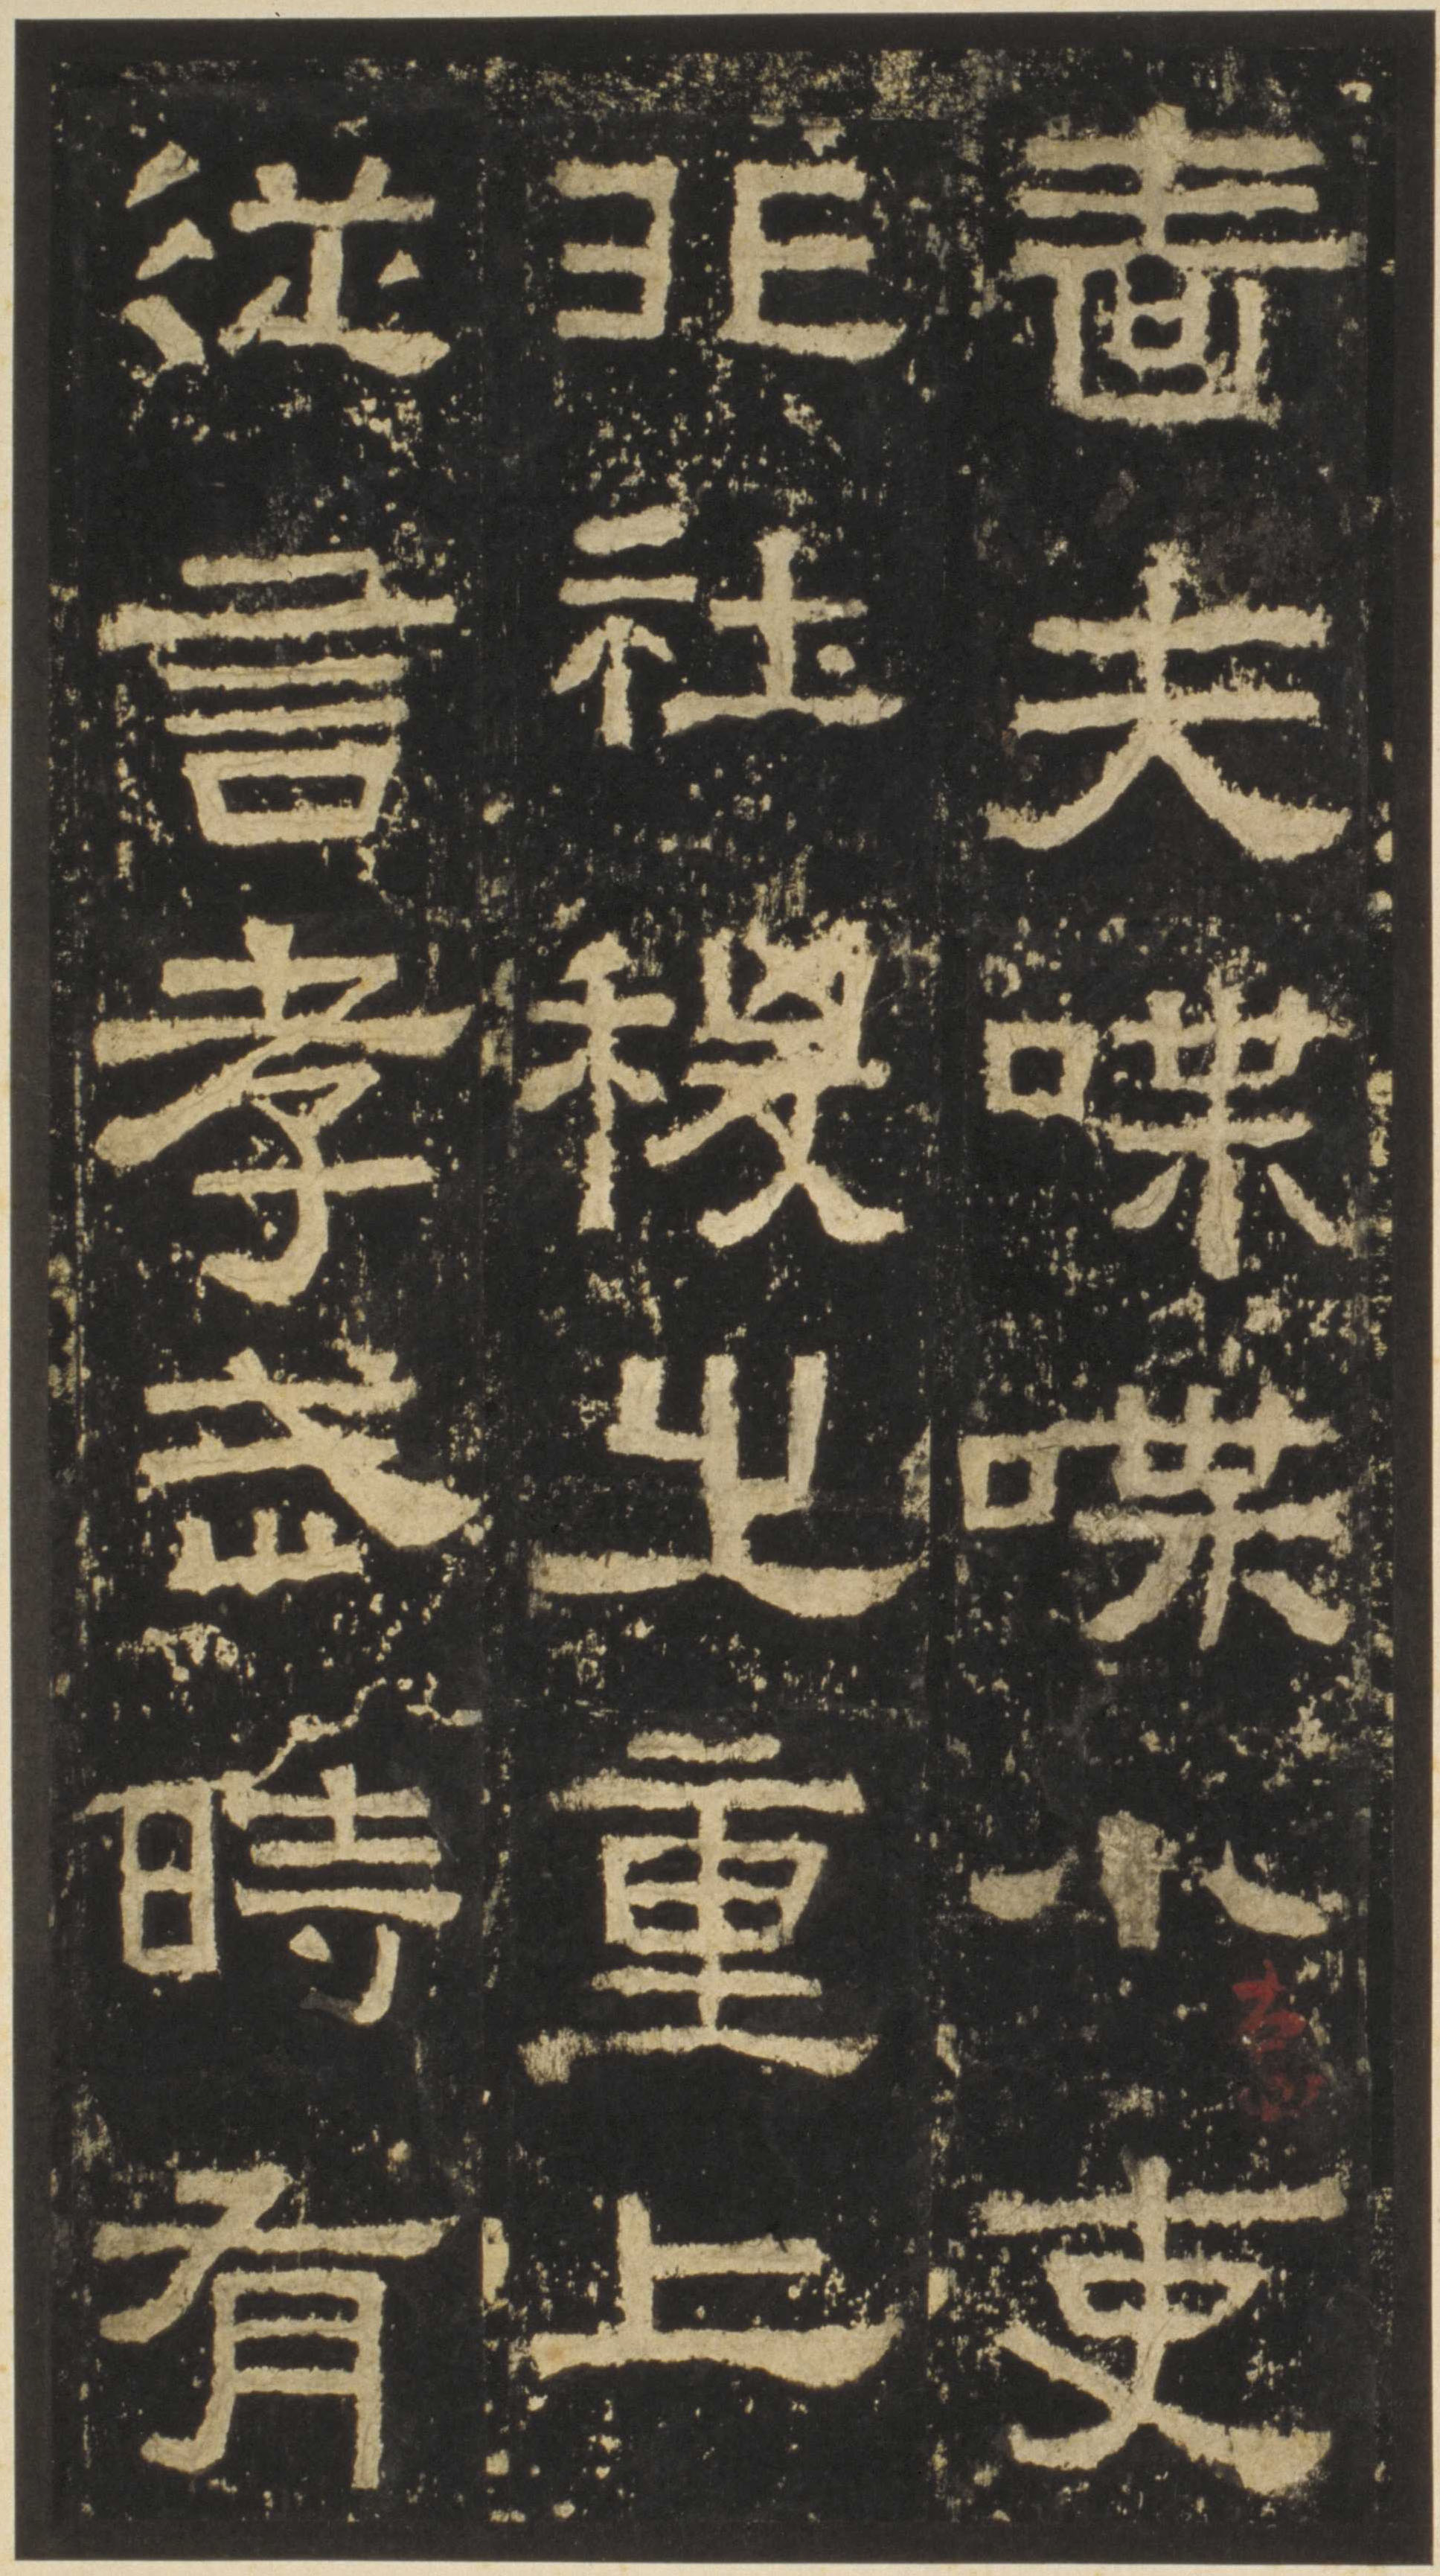 嗇夫喋喋小吏
非社稷之重上
注言孝武時有